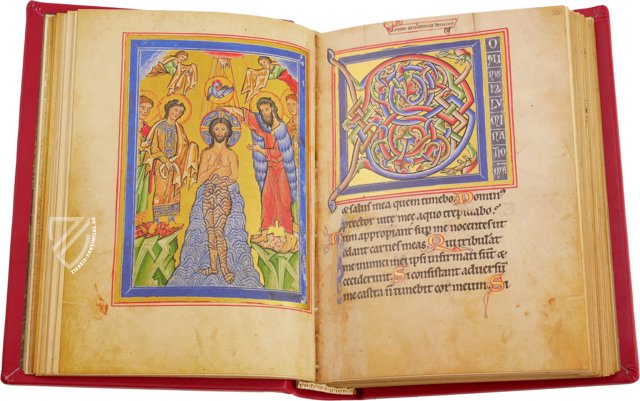 O
MI
N'
US
IL
LV
MI
NA
TIO
MEA
& salus mea quem timebo. Domin'
protector uite mee a quo trepidabo.
Dum appropiant sup me nocentes ut
edant carnes meas. Qui tribulant
me inimici mei ipsi infirmati sunt &
ceciderunt. Si consistant aduersū
me castra n̄ timebit cor meum. Si
ZIEREIS-FAKSIMILES.DE